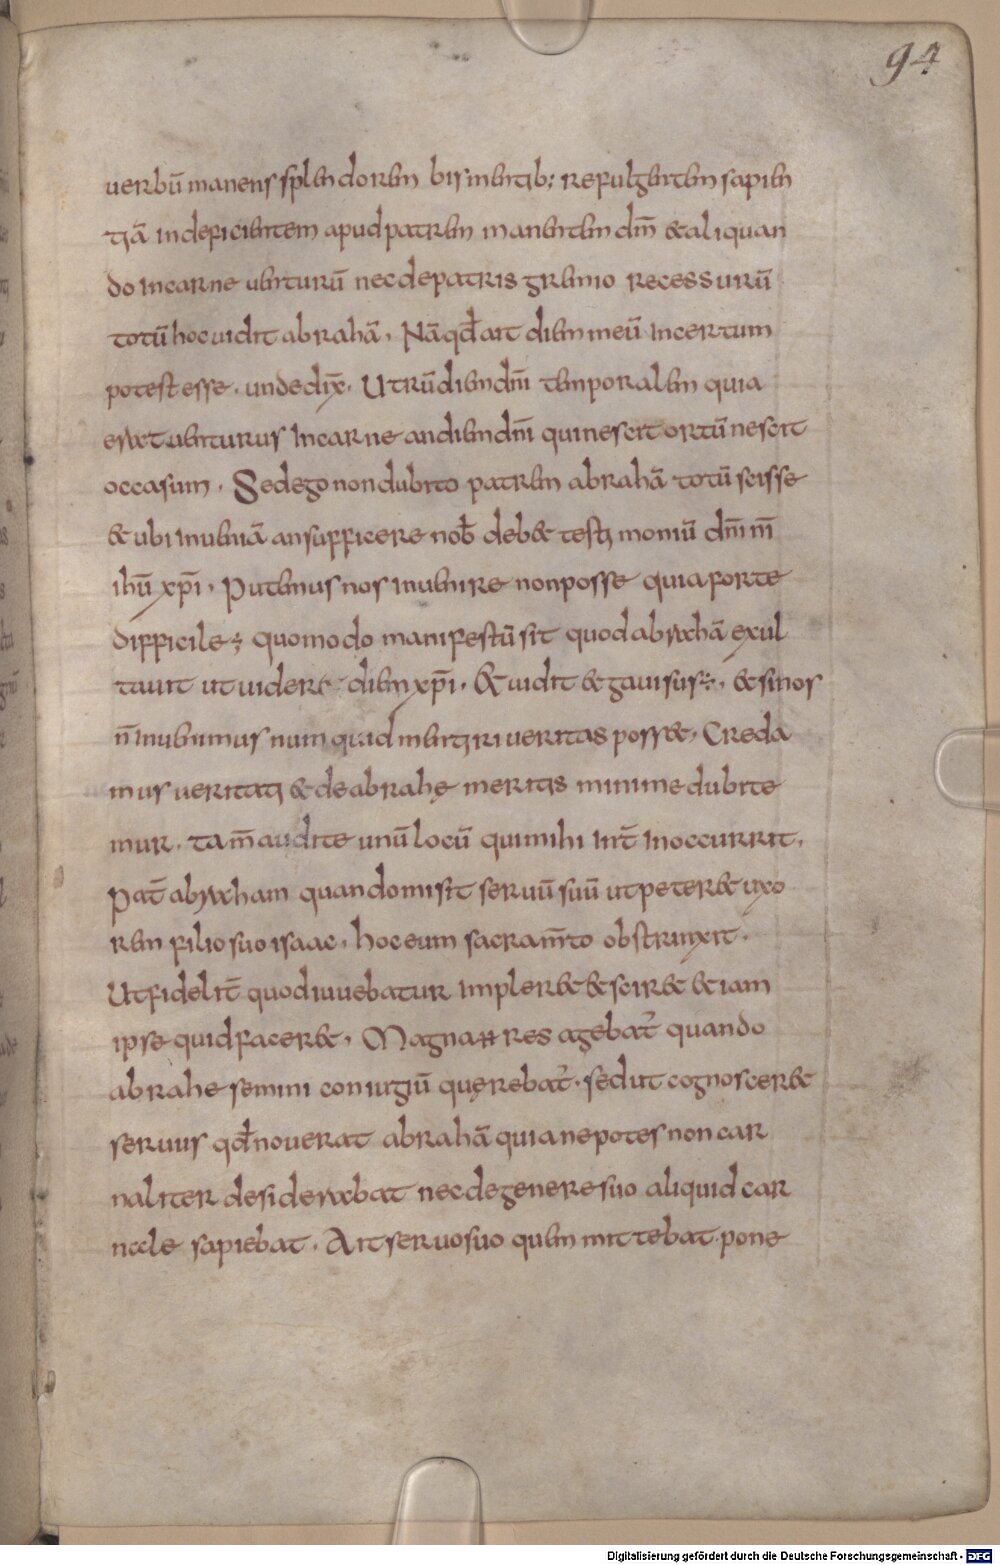 94
uerbū manens splendorem bis mentib; refulgentem sapien
tiā indeficientem apud patrem manentem dm̄ & aliquan
do incarne uenturū nec de patris gremio recessurū
totū hoc uidit abrahā. Nā qđ ait diem meū incertum
potest esse. unde dix̄. Utrū diem dn̄i temporalem quia
erat uenturus incarne an diem dn̄i qui nescit ortū nescit
occasum. Sed ego non dubito patrem abrahā totū scisse
& ubi inueniā an sufficere nob̄ deb& testimoniū dn̄i n̄ri
ihū xp̄i. Putemus nos inuenire non posse quia forte
difficile; quomodo manifestū sit quod abrahā exul
tauit ut uidere diem xp̄i. & uidit & gauisus;. & si nos
n̄ inuenimus numquid mentiri ueritas poss&. Creda
mus ueritati & de abrahę meritis minime dubite
mur. tam̄ audite unū locū qui mihi int̄ inoccurrit.
Pat̄ abraham quando misit seruū suū ut peter& uxo
rem filio suo isaac. hoc eum sacram̄to obstrinxit.
Ut fidelit̄ quod iuuebatur impler& & scir& &iam
ipse quid facer&. Magna H res agebat̄ quando
abrahe semini coniugiū quęrebat̄. sed ut cognoscer&
seruus qđ nouerat abrahā quia nepotes non car
naliter desiderabat nec de genere suo aliquid car
nale sapiebat. Ait seruo suo quem mittebat. pone
Digitalisierung gefördert durch die Deutsche Forschungsgemeinschaft - DFG